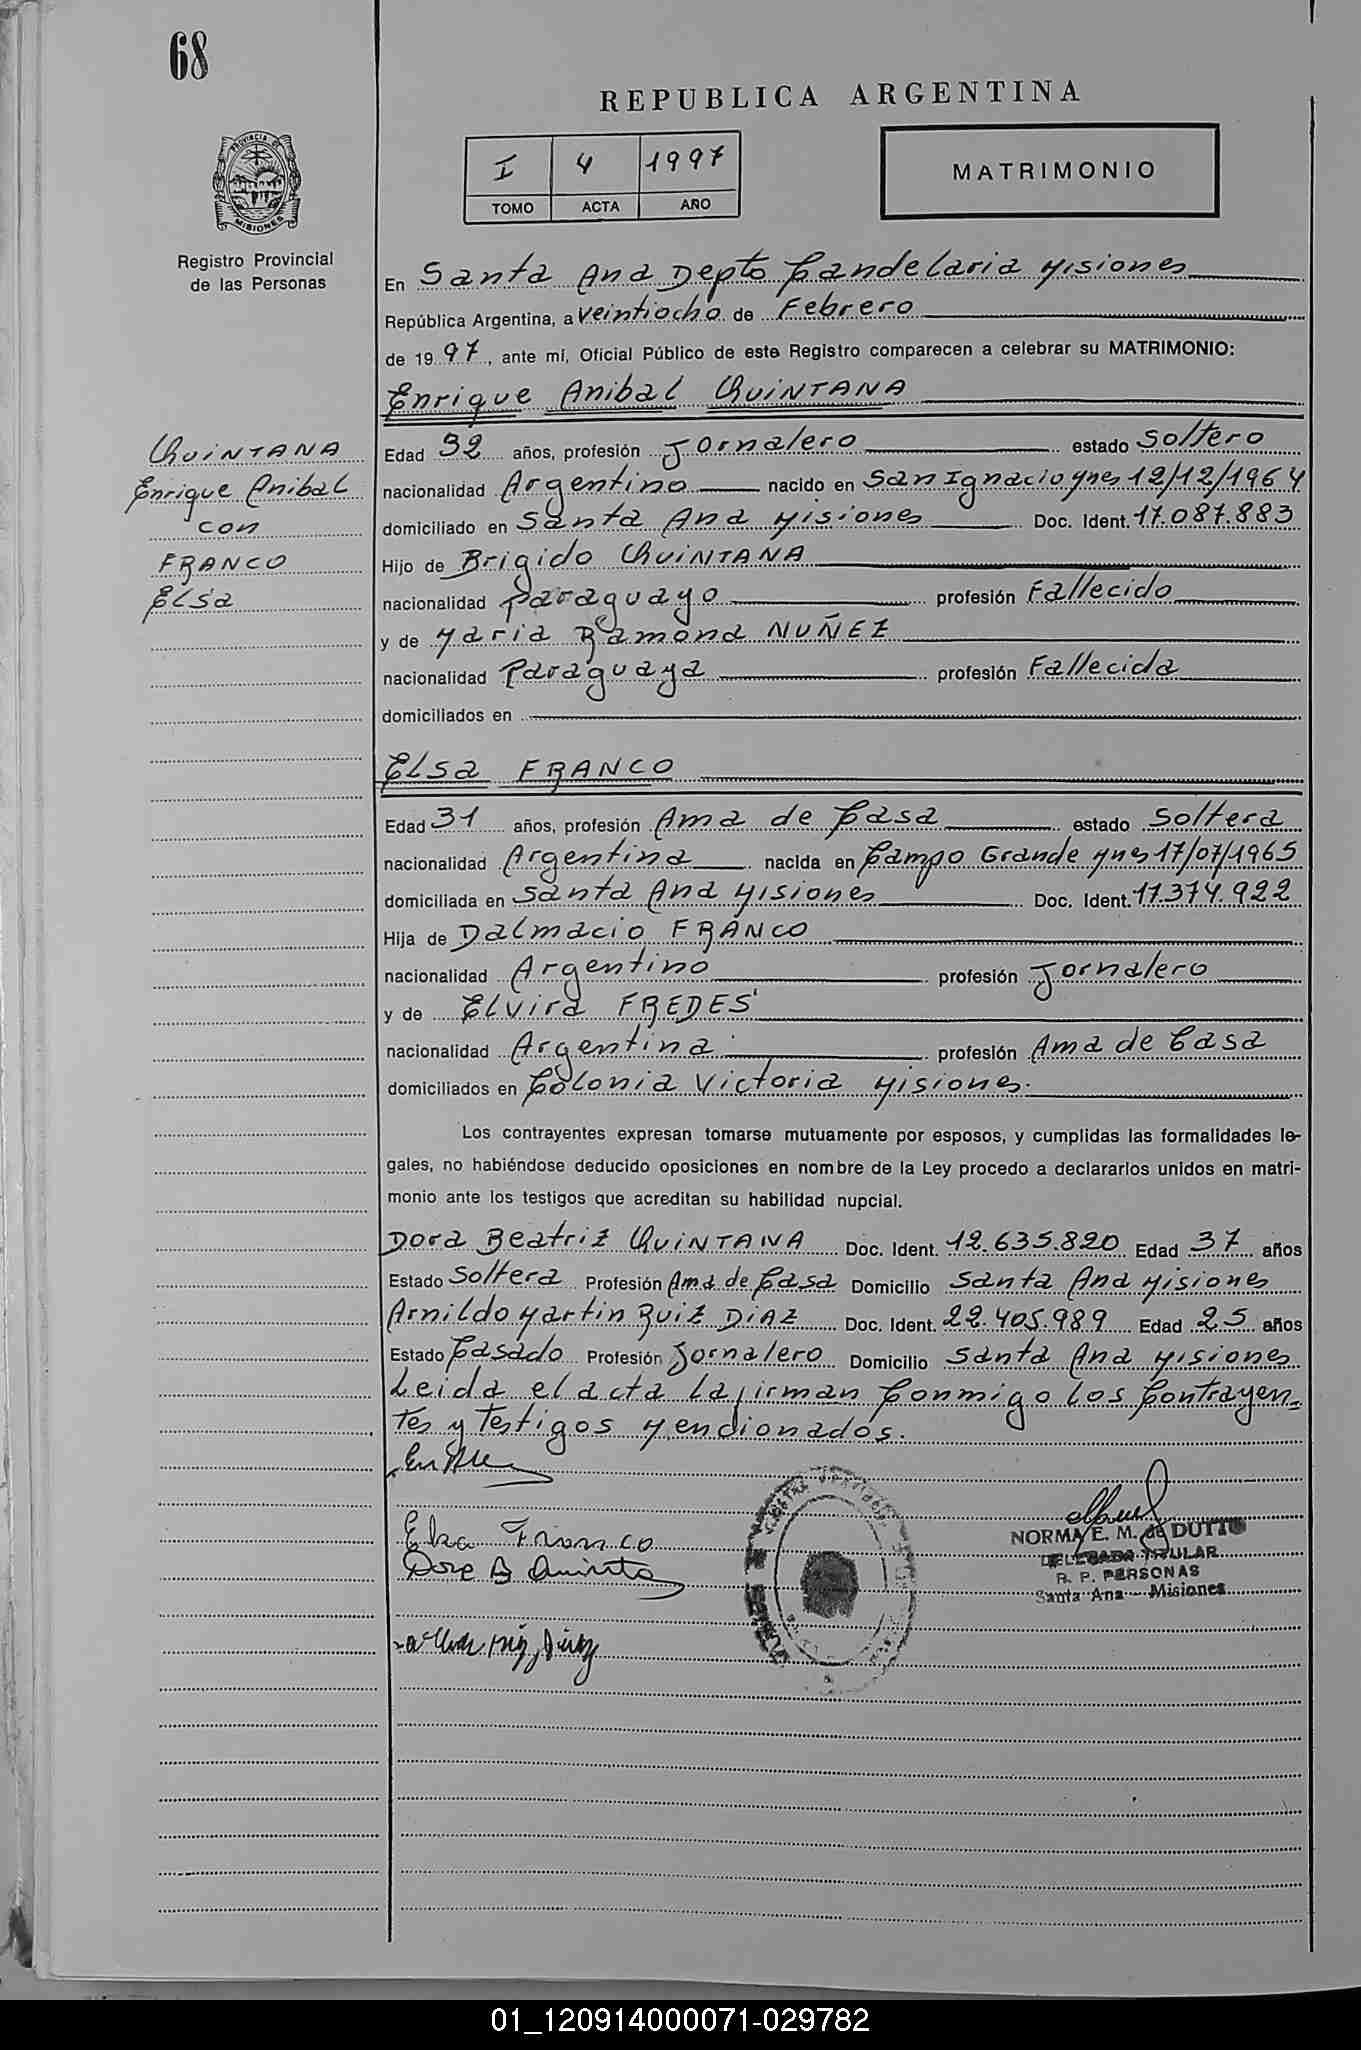 68
REPUBLICA ARGENTINA
PROVINCIA DE
MISIONES
I 4 1997
TOMO ACTA AÑO
MATRIMONIO
Registro Provincial
de las Personas
En Santa Ana Depto Candelaria Misiones
República Argentina, a veintiocho de Febrero
de 19 97, ante mí, Oficial Público de este Registro comparecen a celebrar su MATRIMONIO:
Enrique Anibal QUINTANA
QUINTANA
Enrique Anibal
con
FRANCO
Elsa
Edad 32 años, profesión Jornalero estado Soltero
nacionalidad Argentino nacido en San Ignacio Mnes 12/12/1964
domiciliado en Santa Ana Misiones Doc. Ident. 17.087.883
Hijo de Brigido QUINTANA
nacionalidad Paraguayo profesión Fallecido
y de Maria Ramona NUÑEZ
nacionalidad Paraguaya profesión Fallecida
domiciliados en
Elsa FRANCO
Edad 31 años, profesión Ama de Casa estado Soltera
nacionalidad Argentina nacida en Campo Grande Mnes 17/07/1965
domiciliada en Santa Ana Misiones Doc. Ident. 17.374.922
Hija de Dalmacio FRANCO
nacionalidad Argentino profesión Jornalero
y de Elvira FREDES
nacionalidad Argentina profesión Ama de Casa
domiciliados en Colonia Victoria Misiones.
Los contrayentes expresan tomarse mutuamente por esposos, y cumplidas las formalidades le-
gales, no habiéndose deducido oposiciones en nombre de la Ley procedo a declararlos unidos en matri-
monio ante los testigos que acreditan su habilidad nupcial.
Dora Beatriz QUINTANA Doc. Ident. 12.635.820 Edad 37 años
Estado Soltera Profesión Ama de Casa Domicilio Santa Ana Misiones
Arnildo Martin RUIZ DIAZ Doc. Ident. 22.405.989 Edad 25 años
Estado Casado Profesión Jornalero Domicilio Santa Ana Misiones
Leida el acta la firman Conmigo los Contrayen=
tes y Testigos Mencionados.
Elsa Franco
Dora B Quintana
NORMA E. M. de DUTTO
DELEGADA TITULAR
R. P. PERSONAS
Santa Ana - Misiones
01_120914000071-029782